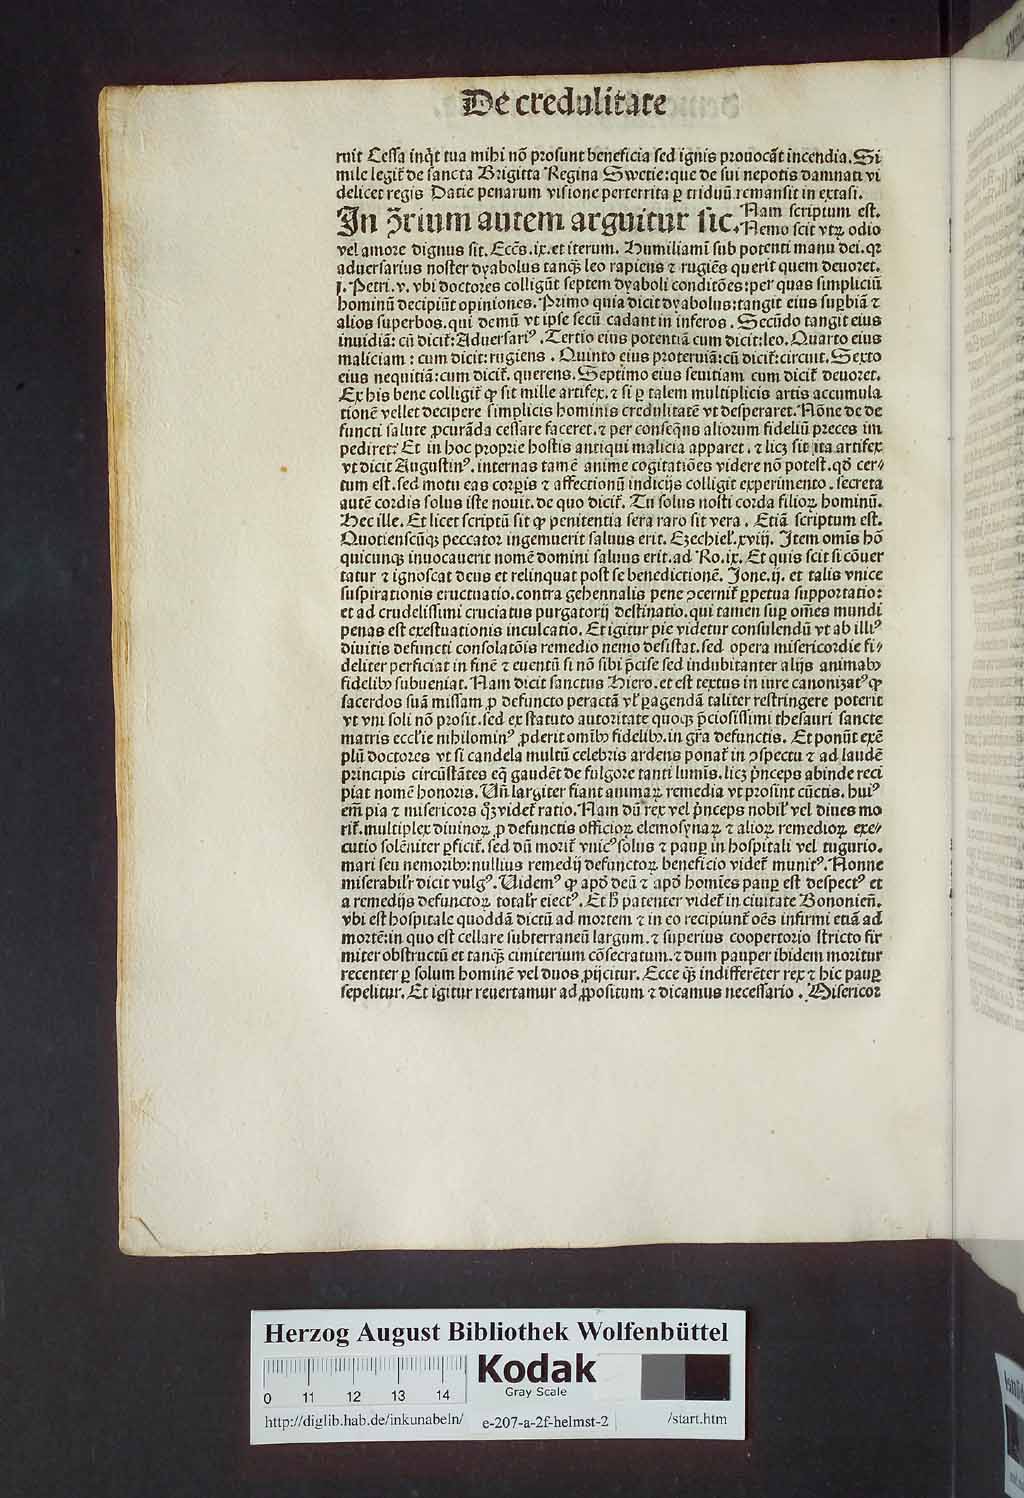 De credulitate
ruit Cessa inq̄t tua mihi nō prosunt beneficia sed ignis prouocāt incendia. Si
mile legit̄ de sancta Brigitta Regina Swetie: que de sui nepotis damnati vi
delicet regis Datie penarum visione perterrita ꝑ triduū remansit in extasi.
In ꝯ̄rium autem arguitur sic. Nam scriptum est.
Nemo scit vtꝝ odio
vel amore dignus sit. Ecc̄s. ix. et iterum. Humiliamī sub potenti manu dei. qꝛ
aduersarius noster dyabolus tanqꝫ leo rapiens ⁊ rugiēs querit quem deuoret.
j. Petri. v. vbi doctores colligūt septem dyaboli conditōes: per quas simpliciū
hominū decipiūt opiniones. Primo quia dicit dyabolus: tangit eius suꝑbiā ⁊
alios superbos. qui demū vt ipse secū cadant in inferos. Secūdo tangit eius
inuidiā: cū dicit̄: Aduersariꝰ. Tertio eius potentiā cum dicit: leo. Quarto eius
maliciam: cum dicit: rugiens. Quinto eius proteruiā: cū dicit̄: circuit. Sexto
eius nequitiā: cum dicit̄. querens. Septimo eius seuitiam cum dicit̄ deuoret.
Ex his bene colligit̄ ꝙ sit mille artifex. ⁊ si ꝑ talem multiplicis artis accumula
tionē vellet decipere simplicis hominis credulitatē vt desperaret. Nōne de de
functi salute ꝓcurāda cessare faceret. ⁊ per conseq̄ns aliorum fideliū preces im
pediret? Et in hoc proprie hostis antiqui malicia apparet. ⁊ licꝫ sit ita artifex
vt dicit Augustinꝰ. internas tamē anime cogitatiōes videre nō potest. qđ cer⸗
tum est. sed motu eas corꝑis ⁊ affectionū indicijs colligit experimento. secreta
autē cordis solus iste nouit. de quo dicit̄. Tu solus nosti corda filioꝝ hominū.
Hec ille. Et licet scriptū sit ꝙ penitentia sera raro sit vera. Etiā scriptum est.
Quotienscūqꝫ peccator ingemuerit saluus erit. Ezechiel̄. xviij. Item omīs hō
quicunqꝫ inuocauerit nomē domini saluus erit. ad Ro. ix. Et quis scit si cōuer
tatur ⁊ ignoscat deus et relinquat post se benedictionē. Jone. ij. et talis vnice
suspirationis eructuatio. contra gehennalis pene ꝯcernit̄ ꝑpetua supportatio:
et ad crudelissimi cruciatus purgatorij destinatio. qui tamen suꝑ om̄es mundi
penas est exestuationis inculcatio. Et igitur pie videtur consulendū vt ab illiꝰ
diuitis defuncti consolatōis remedio nemo desistat. sed opera misericordie fi⸗
deliter perficiat in finē ⁊ euentū si nō sibi p̄cise sed indubitanter alijs animabꝫ
fidelibꝫ subueniat. Nam dicit sanctus Hiero. et est textus in iure canonizatꝰ ꝙ
sacerdos suā missam ꝓ defuncto peractā vl̓ ꝑagendā taliter restringere poterit
vt vni soli nō prosit. sed ex statuto autoritate quoqꝫ p̄ciosissimi thesauri sancte
matris eccl̓ie nihilominꝰ ꝓderit omībꝫ fidelibꝫ. in gr̄a defunctis. Et ponūt exē
plū doctores vt si candela multū celebris ardens ponat̄ in ꝯspectu ⁊ ad laudē
principis circūstātes eq̄ gaudēt de fulgore tanti lumīs. licꝫ p̄nceps abinde reci
piat nomē honoris. Uñ largiter fiant animaꝝ remedia vt prosint cūctis. huiꝰ
em̄ pia ⁊ misericors qꝫ videt̄ ratio. Nam dū rex vel p̄nceps nobil̓ vel diues mo
rit̄. multiplex diuinoꝝ ꝓ defunctis officioꝝ elemosynaꝝ ⁊ alioꝝ remedioꝝ exe⸗
cutio solēniter ꝑficit̄. sed dū morit̄ vnicꝰ solus ⁊ pauꝑ in hospitali vel tugurio.
mari seu nemoribꝫ: nullius remedij defunctoꝝ beneficio videt̄ munitꝰ. Nonne
miserabil̓r dicit vulgꝰ. Uidemꝰ ꝙ apđ deū ⁊ apđ homīes pauꝑ est despectꝰ et
a remedijs defunctoꝝ total̓r eiectꝰ. Et h̓ patenter videt̄ in ciuitate Bononieñ.
vbi est hospitale quoddā dictū ad mortem ⁊ in eo recipiunt̄ oēs infirmi etiā ad
mortē: in quo est cellare subterraneū largum. ⁊ superius coopertorio stricto fir
miter obstructū et tanqꝫ cimiterium cōsecratum. ⁊ dum pauper ibidem moritur
recenter ꝑ solum hominē vel duos ꝓijcitur. Ecce qꝫ indifferēter rex ⁊ hic pauꝑ
sepelitur. Et igitur reuertamur ad ꝓpositum ⁊ dicamus necessario. Misericor
Herzog August Bibliothek Wolfenbüttel
Kodak
Gray Scale
0 11 12 13 14
http://diglib.hab.de/inkunabeln/ e-207-a-2f-helmst-2 /start.htm